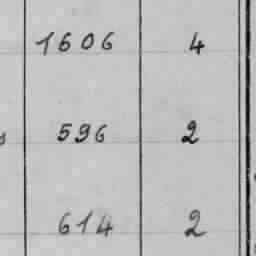 1606 4
596 2
614 2